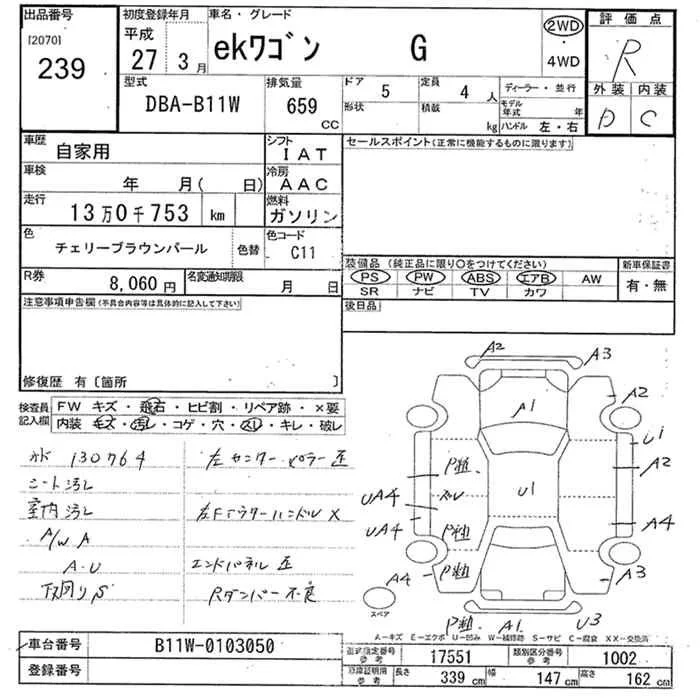 出品番号
[2070]
239
初度登録年月
平成
27 3 月
車名・グレード
ekワゴン G
2WD
・
4WD
評価点
R
外装 内装
D C
型式
DBA-B11W
排気量
659
CC
ドア
5
形状
定員
4 人
積載
kg
ディーラー・並行
モデル年式 年
ハンドル 左・右
車歴
自家用
シフト
IAT
車検
年 月( 日)
冷房
AAC
走行
13万0千753 km
燃料
ガソリン
色
チェリーブラウンパール
色替
色コード
C11
R券
8,060 円
名変通知期限
月 日
セールスポイント(正常に機能するものに限ります)
装備品 (純正品に限り○をつけてください)
PS PW ABS エアB AW
SR ナビ TV カワ
新車保証書
有・無
後日品
注意事項申告欄(不具合内容等は具体的に記入して下さい)
修復歴 有〔箇所 〕
検査員記入欄
FW キズ・飛石・ヒビ割・リペア跡・×要
内装 キズ・汚レ・コゲ・穴・スレ・キレ・破レ
130764
シート汚レ
室内汚レ
A/W A
A・U
下回りS
左センターピラー歪
左Fアウターハンドル X
エンドパネル歪
Rダンパー不良
A2
A3
A1
A2
U1
A2
P粗
スレ
U1
UA4
UA4
A4
P粗
P粗
A4
A3
スペア
P粗
A1
U3
A－キズ E－エクボ U－凹み W－補修跡 S－サビ C－腐食 XX－交換済
車台番号
B11W-0103050
登録番号
型式指定番号
参考
17551
類別区分番号
参考
1002
車庫証明用
参考
長さ 339 cm
幅 147 cm
高さ 162 cm